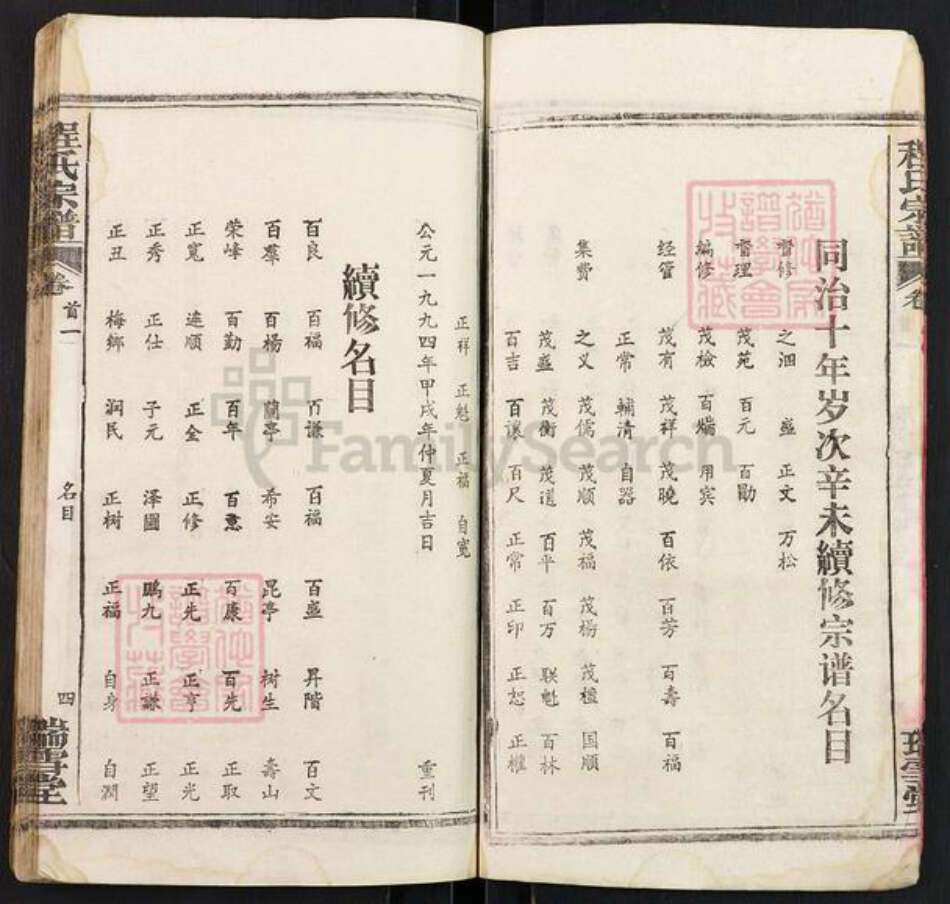 程氏宗譜
卷
同治十年岁次辛未續修宗谱名目
督修 之泗 盛 正文 万松
督理 茂苑 百元 百勛
编修 茂檢 百瑞 用宾
经管 茂有 茂祥 茂曉 百依 百芳 百壽 百福
正常 輔清 自器
集费 之义 茂儒 茂順 茂福 茂楊 茂楹 国順
茂盛 茂衡 茂道 百平 百万 联魁 百林
百吉 百讓 百尺 正常 正印 正恕 正權
正祥 正魁 正福 自寬
公元一九九四年甲戌年仲夏月吉日 重刊
續修名目
百良 百福 百謙 百福 百盛 昇階 百文
百羣 百楊 蘭亭 希安 昆亭 树生 壽山
荣峰 百勤 百年 百意 百康 百先 正取
正寬 連順 正全 正修 正先 正亨 正光
正秀 正仕 子元 泽國 鵬九 正謙 正望
正丑 梅鄉 润民 正树 正福 自身 自潤
程氏宗譜
卷首一
名目
四
瑞雪堂
FamilySearch